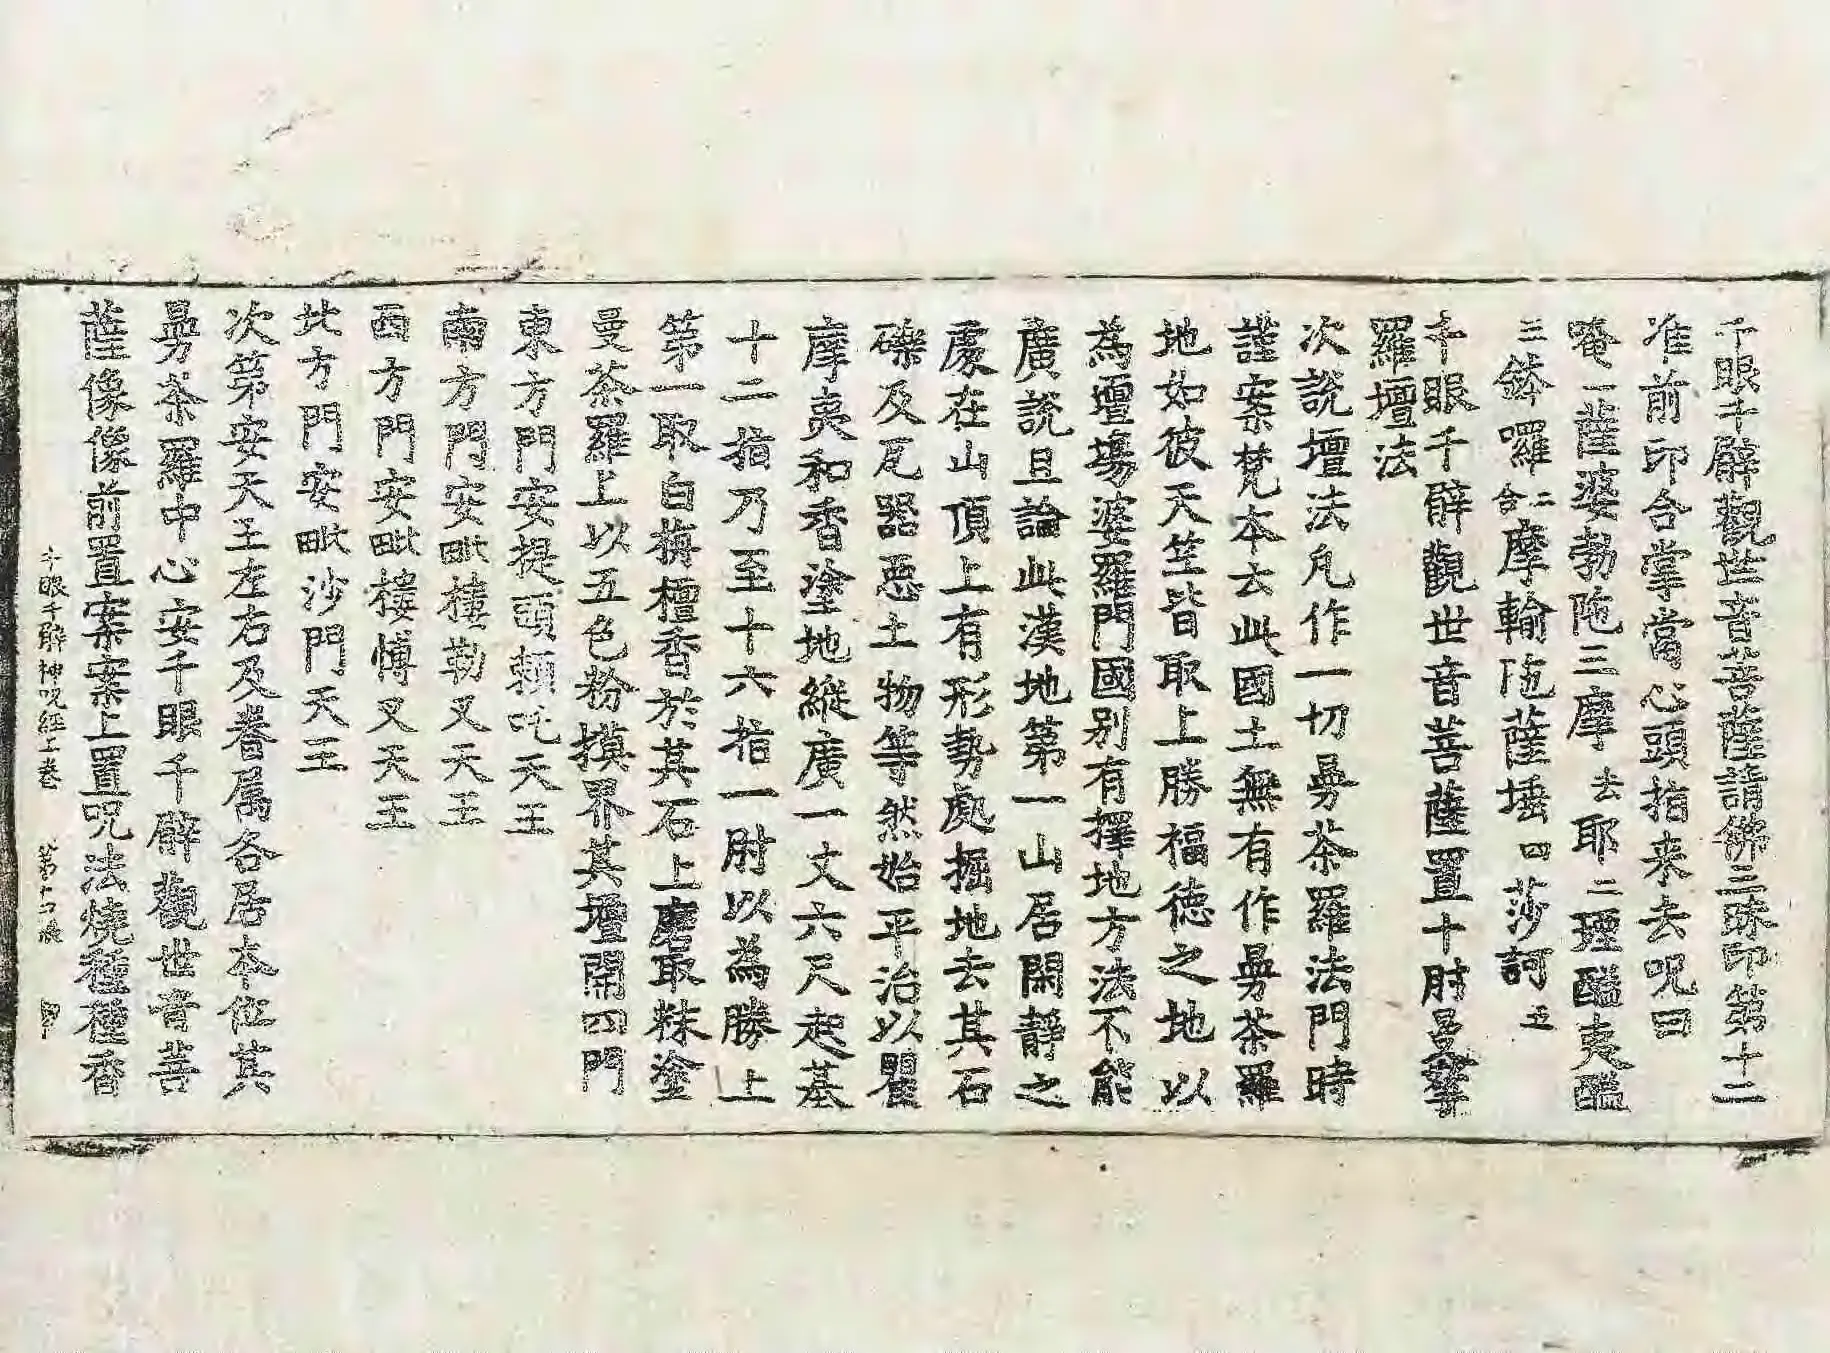 千眼千臂觀世音菩薩請佛三昧印第十二
准前印合掌當心頭指来去呪曰
唵一薩婆勃陁三摩去耶二堙醯夷醯
三鉢囉二合摩輸陁薩埵四莎訶五
千眼千臂觀世音菩薩置十肘曼拏
羅壇法
次說壇法凡作一切曼茶羅法門時
謹案梵本云此國土無有作曼茶羅
地如彼天竺皆取上勝福德之地以
為壇場婆羅門國別有擇地方法不能
廣說且論此漢地第一山居閑靜之
處在山頂上有形勢處掘地去其石
礫及瓦器惡土物等然始平治以瞿
摩夷和香塗地縱廣一丈六尺起基
十二指乃至十六指一尉以為勝上
第一取白旃檀香於其石上磨取粖塗
曼茶羅上以五色粉摸界其壇開四門
東方門安提頭頼吒天王
南方門安毗樓勒叉天王
西方門安毗樓愽叉天王
北方門安毗沙門天王
次第安天王左右及眷屬各居本位其
曼茶羅中心安千眼千臂觀世音菩
薩像像前置案案上置呪法燒種種香
千眼千臂神呪經上卷 第十